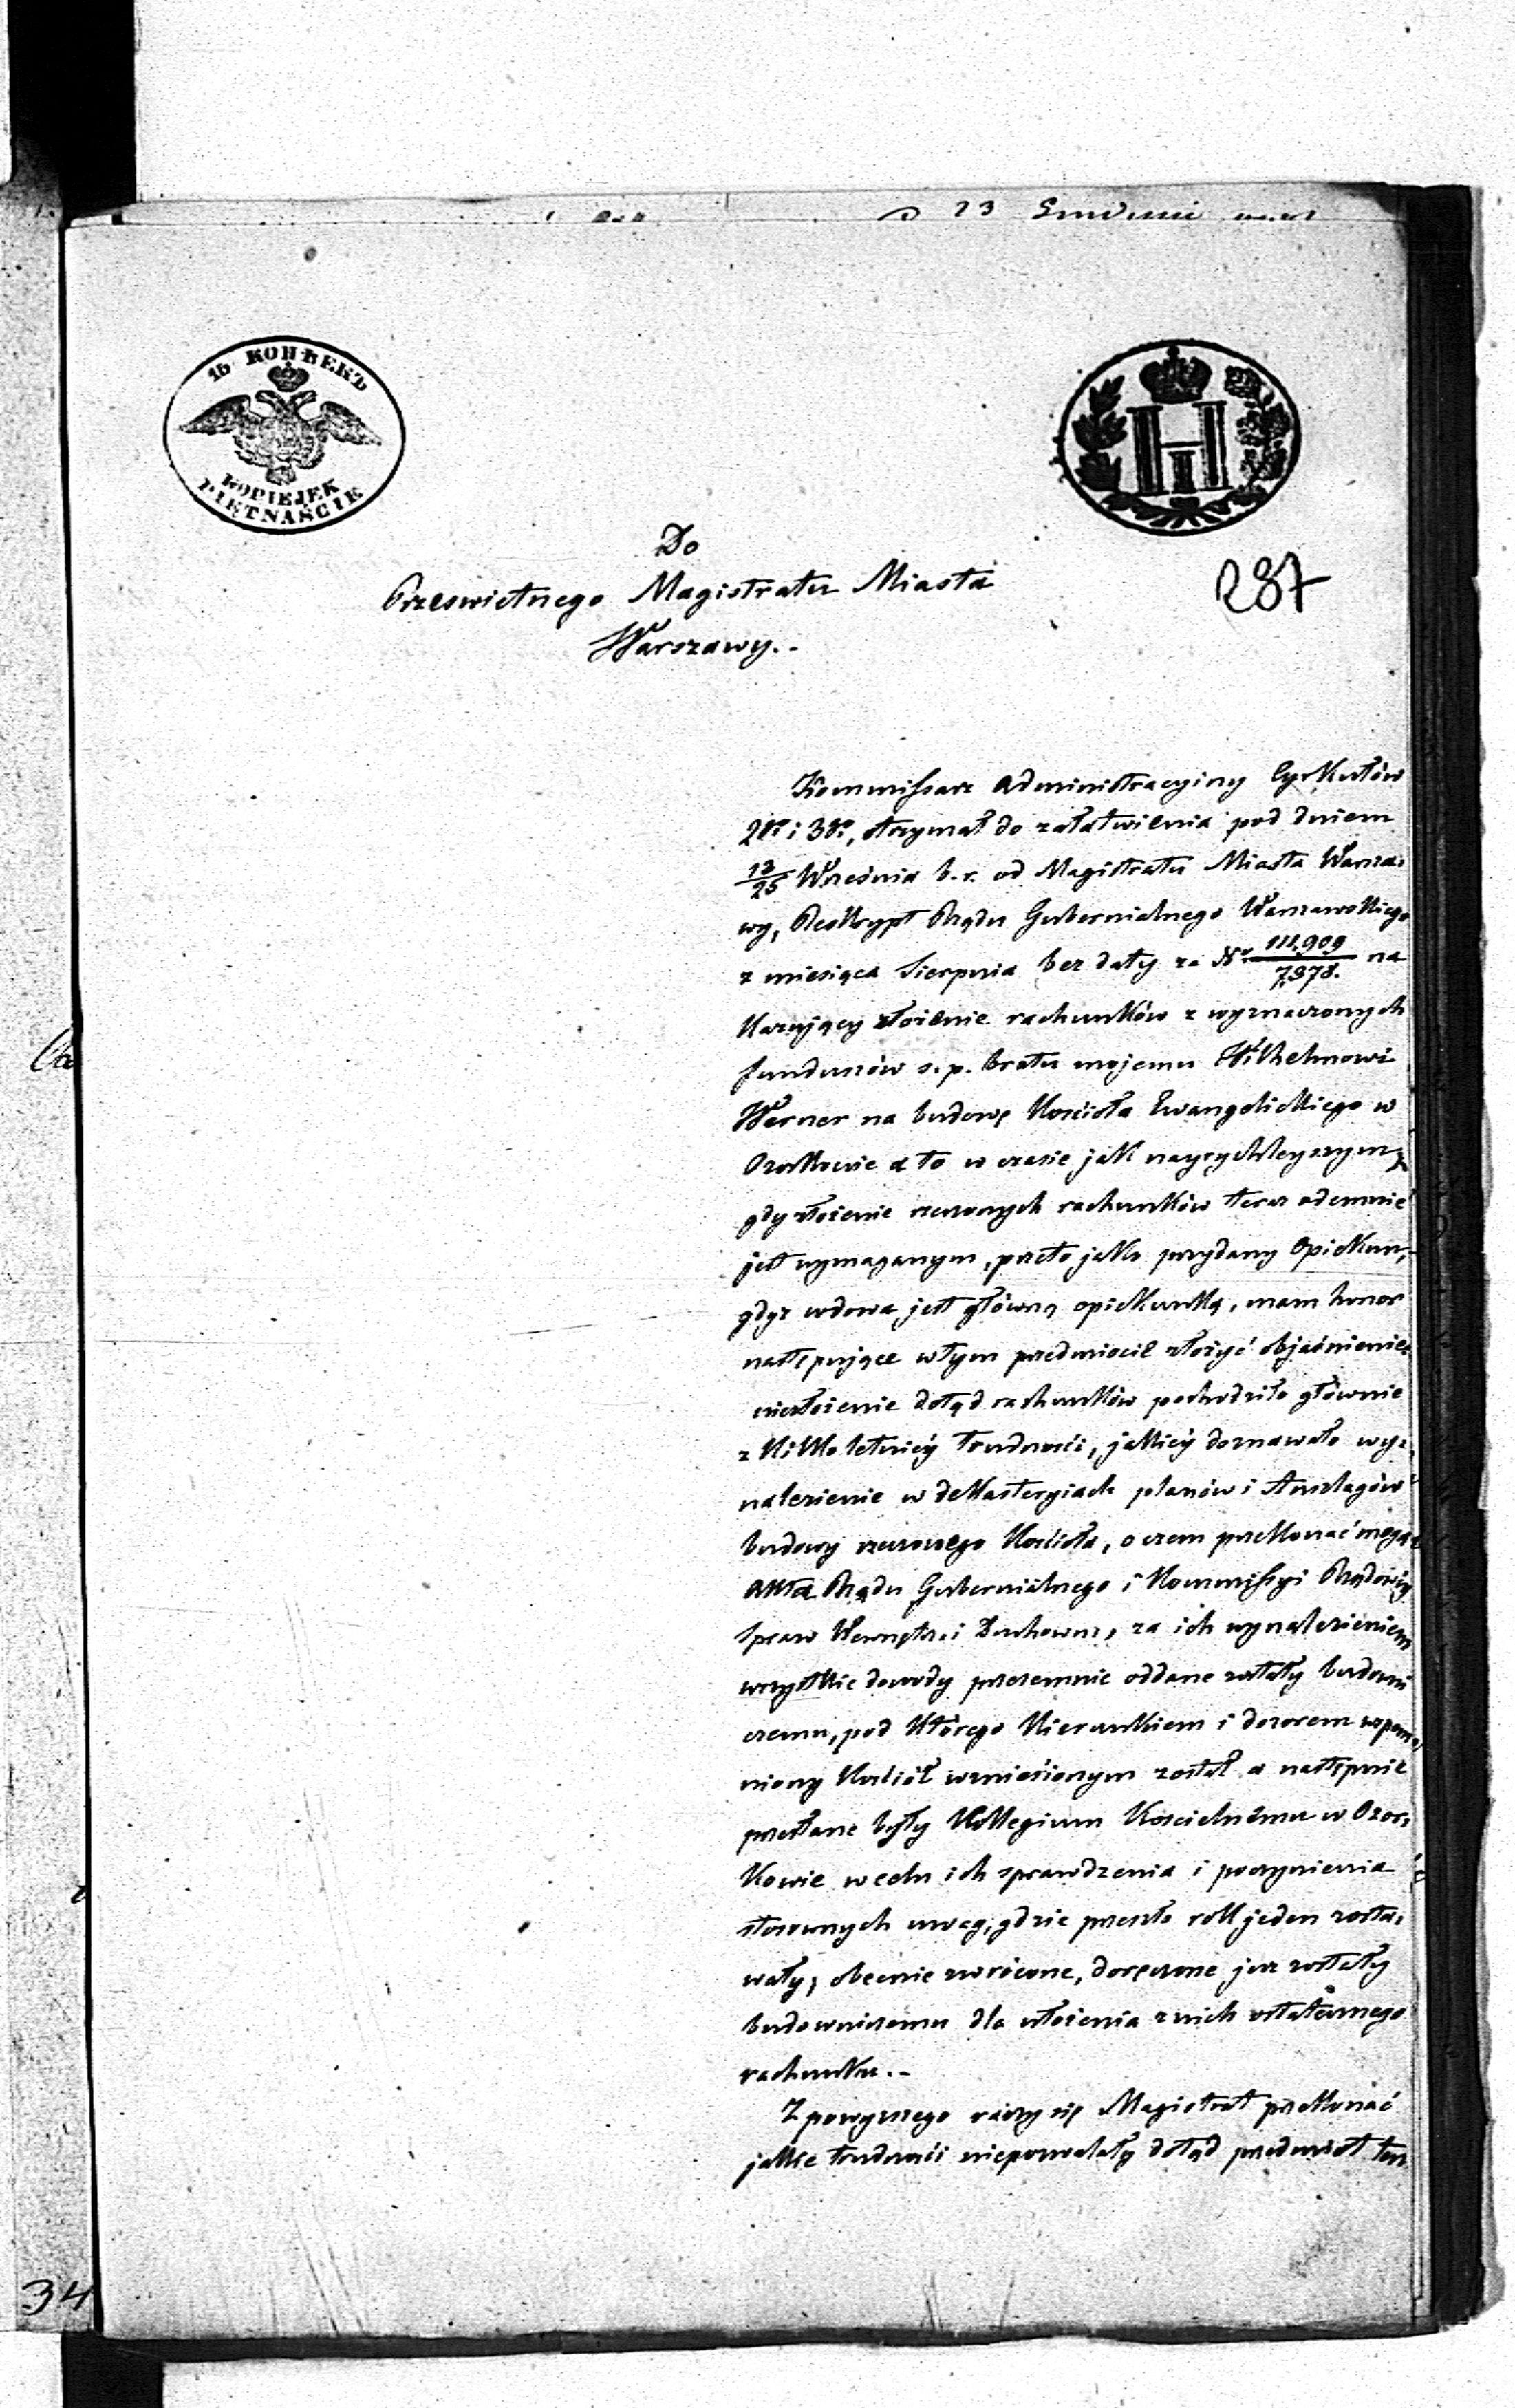 15 КОПѢЕКЪ
KOPIEJEK
PIĘTNAŚCIE
Do
Prześwietnego Magistratu Miasta
Warszawy.-
287
Kommissarz Administracyiny Cyrkułów
2go i 3go, otrzymał do załatwienia pod dniem
13/25 Września b.r. od Magistratu Miasta Warsza-
wy, Reskrypt Rządu Gubernialnego Warszawskiego
z miesiąca Sierpnia bez daty za Nr 111.909/7.978. na
kazujący złożenie rachunków z wyznaczonych
funduszów s.p. bratu mojemu Wilhelmowi
Werner na budowę Kościoła Ewangelickiego w
Ozorkowie a to w czasie jak nayrychleyszym,
gdy złożenie rzeczonych rachunków teraz odemnie
jest wymaganym, przeto jako przydany Opiekun,
gdyż wdowa jest główną opiekunką, mam honor
następujące w tym przedmiocie złożyć objaśnienie.
niezłożenie dotąd rachunków pochodziło głównie
z kilko letniéy trudności, jakiéy doznawało wy-
nalezienie w dekasteryiach planów i Anszlagów
budowy rzeczonego Kościoła, o czem przekonać mogą
akta Rządu Gubernialnego i Kommissyi Rządowéy
Spraw Wewnętrz. i Duchown., za ich wynalezieniem
wszystkie dowody przezemnie oddane zostały budowni
czemu, pod którego kierunkiem i dozorem wspom-
niony Kościół wzniesionym został a następnie
przesłane były Kollegium Kościelnému w Ozor-
kowie w celu ich sprawdzenia i poczynienia
stosownych uwag, gdzie przeszło rok jeden zosta-
wały, obecnie zwrócone, doręczone już zostały
budowniczemu dla ułożenia z nich ostatecznego
rachunku.-
Z powyższego raczy się Magistrat przekonać
jakie trudności niepozwalały dotąd przedmiot ten
34